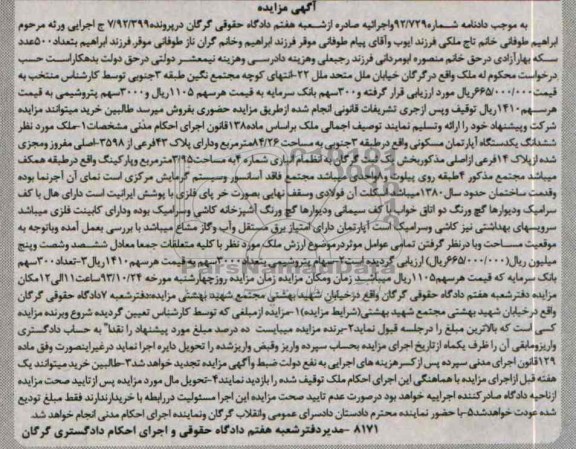 آگهی مزایده
به موجب دادنامه شماره۹۲/۷۲۹واجرائیه صادره ازشعبه هفتم دادگاه حقوقی گرگان درپرونده۷/۹۲/۳۹۹ ج اجرایی ورثه مرحوم
ابراهیم طوفانی خانم تاج ملکی فرزند ایوب وآقای پیام طوفانی موقر فرزند ابراهیم وخانم گران ناز طوفانی موقر فرزند ابراهیم بتعداد۵۰۰عدد
سکه بهارآزادی درحق خانم منصوره ابومردانی فرزند رجبعلی وهزینه دادرسی وهزینه نیمعشر دولتی درحق دولت بدهکاراست حسب
درخواست محکوم له ملک واقع درگرگان خیابان ملل متحد ملل ۲۲-انتهای کوچه مجتمع نگین طبقه ۳جنوبی توسط کارشناس منتخب به
قیمت۶۶۵/۰۰۰/۰۰۰ریال مورد ارزیابی قرار گرفته و۳۰۰سهم بانک سرمایه به قیمت هرسهم ۱۱۰۵ریال و۳۰۰۰سهم پتروشیمی به قیمت
هرسهم۱۴۱۰ریال توقیف وپس ازجری تشریفات قانونی انجام شده ازطریق مزایده حضوری بفروش میرسد طالبین خرید میتوانند مزایده
شرکت وپیشنهاد خود را ارائه وتسلیم نمایند توصیف اجمالی ملک براساس ماده۱۳۸قانون اجرای احکام مدنی مشخصات۱-ملک مورد نظر
ششدانگ یکدستگاه آپارتمان مسکونی واقع درطبقه ۳جنوبی به مساحت ۸۴/۲۶مترمربع ودارای پلاک ۴۲فرعی از۳۵۹۸-اصلی مفروز ومجزی
شده ازپلاک ۱۴فرعی ازاصلی مذکوربخش گرگان به انظمام انباری شماره ۴به مساحت۳/۹۵مترمربع وپارکینگ واقع درطبقه همکف
میباشد مجتمع مذکور ۴طبقه روی پیلوت و واحدی میباشد مجتمع فاقد آسانسور وسیستم گرمایش مرکزی است نمای آن آجرنما بوده
وقدمت ساختمان حدود سال ۱۳۸۰میباشد اسکلت آن فولادی وسقف نهایی بصورت خر پای فلزی با پوشش ایرانیت است دارای هال با کف
سرامیک ودیوارها گچ ورنگ دو اتاق خواب با کف سیمانی ودیوارها گچ ورنگ آشپزخانه کاشی وسرامیک بوده ودارای کابینت فلزی میباشد
سرویسهای بهداشتی نیز کاشی وسرامیک است آپارتمان دارای امتیاز برق مستقل وآب وگاز مشاع میباشد با بررسی بعمل آمده وباتوجه به
موقعیت مساحت وبا درنظر گرفتن تمامی عوامل موثردرموضوع ارزش ملک مورد نظر با کلیه متعلقات جمعا معادل ششصد وشصت وپنج
میلیون ریال(۶۶۵/۰۰۰/۰۰۰ریال) ارزیابی گردیده است۲-سهام پتروشیمی بتعداد۳۰۰۰سهم به قیمت هرسهم ۱۴۱۰ریال۳-تعداد۳۰۰سهم
بانک سرمایه که قیمت هرسهم۱۱۰۵ریال میباشد زمان ومکان مزایده زمان مزایده روزچهارشنبه مورخه ۹۳/۱۰/۲۴ساعت۱۱الی۱۲مکان
مزایده دفترشعبه هفتم دادگاه حقوقی گرگان واقع درخیابان شهید بهشتی مجتمع شهید بهشتی مزایده:دفترشعبه ۷دادگاه حقوقی گرگان
واقع درخیابان شهید بهشتی مجتمع شهید بهشتی(شرایط مزایده)۱-مزایده ازمبلغی که توسط کارشناس تعیین گردیده شروع وبرنده مزایده
کسی است که بالاترین مبلغ را درجلسه قبول نماید۲-برنده مزایده میبایست ده درصد مبلغ مورد پیشنهاد را نقدا" به حساب دادگستری
واریزومابقی آن را ظرف یکماه ازتاریخ اجرای مزایده بحساب سپرده واریز وقبض واریزشده را تحویل دایره اجرا نماید درغیراینصورت وفق ماده
۱۲۹قانون اجرای مدنی سپرده پس ازکسرهزینه های اجرایی به نفع دولت ضبط وآگهی مزایده تجدید خواهد شد۳-طالبین خرید میتوانند یک
هفته قبل ازاجرای مزایده با هماهنگی این اجرای احکام ملک توقیف شده را بازدید نمایند۴-تحویل مال مورد مزایده پس ازتایید صحت مزایده
ازناحیه دادگاه صادرکننده اجراییه خواهد بود درصورت عدم تایید صحت مزایده این اجرا مسئولیت دررابطه با خریدارندارند فقط مبلغ تودیع
شده عودت خواهدشد۵-با حضور نماینده محترم دادستان دادسرای عمومی وانقلاب گرگان ونماینده اجرای احکام مدنی انجام خواهد شد.
۸۱۷۱ -مدیردفترشعبه هفتم دادگاه حقوقی و اجرای احکام دادگستری گرگان